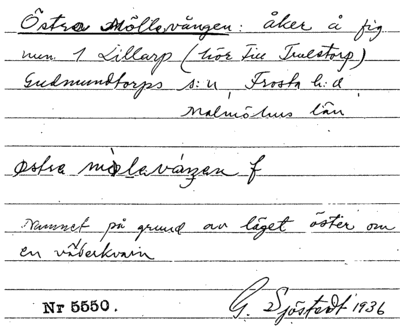 Östra Möllevången: åker å fig
num. 1 Lillarp (hör till Truletorp)
Gudmundtorps s:n, Frosta h:d,
Malmöhus län
østra mølaváŋen f
Namnet på grund av läget öster om
en väderkvarn
Nr 5550.
G. Sjöstedt 1936